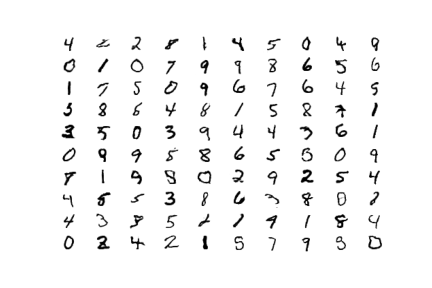 4 2 2 8 1 4 5 0 4 9
0 1 0 7 9 9 8 6 5 6
1 7 5 0 9 6 7 6 4 5
3 8 6 4 8 1 5 8 7 1
3 5 0 3 9 4 4 3 6 1
0 9 9 5 8 6 5 5 0 9
7 1 9 8 0 2 9 2 5 4
4 8 5 3 8 6 3 8 0 8
4 3 8 5 2 1 9 1 8 4
0 2 4 2 1 5 7 9 5 0